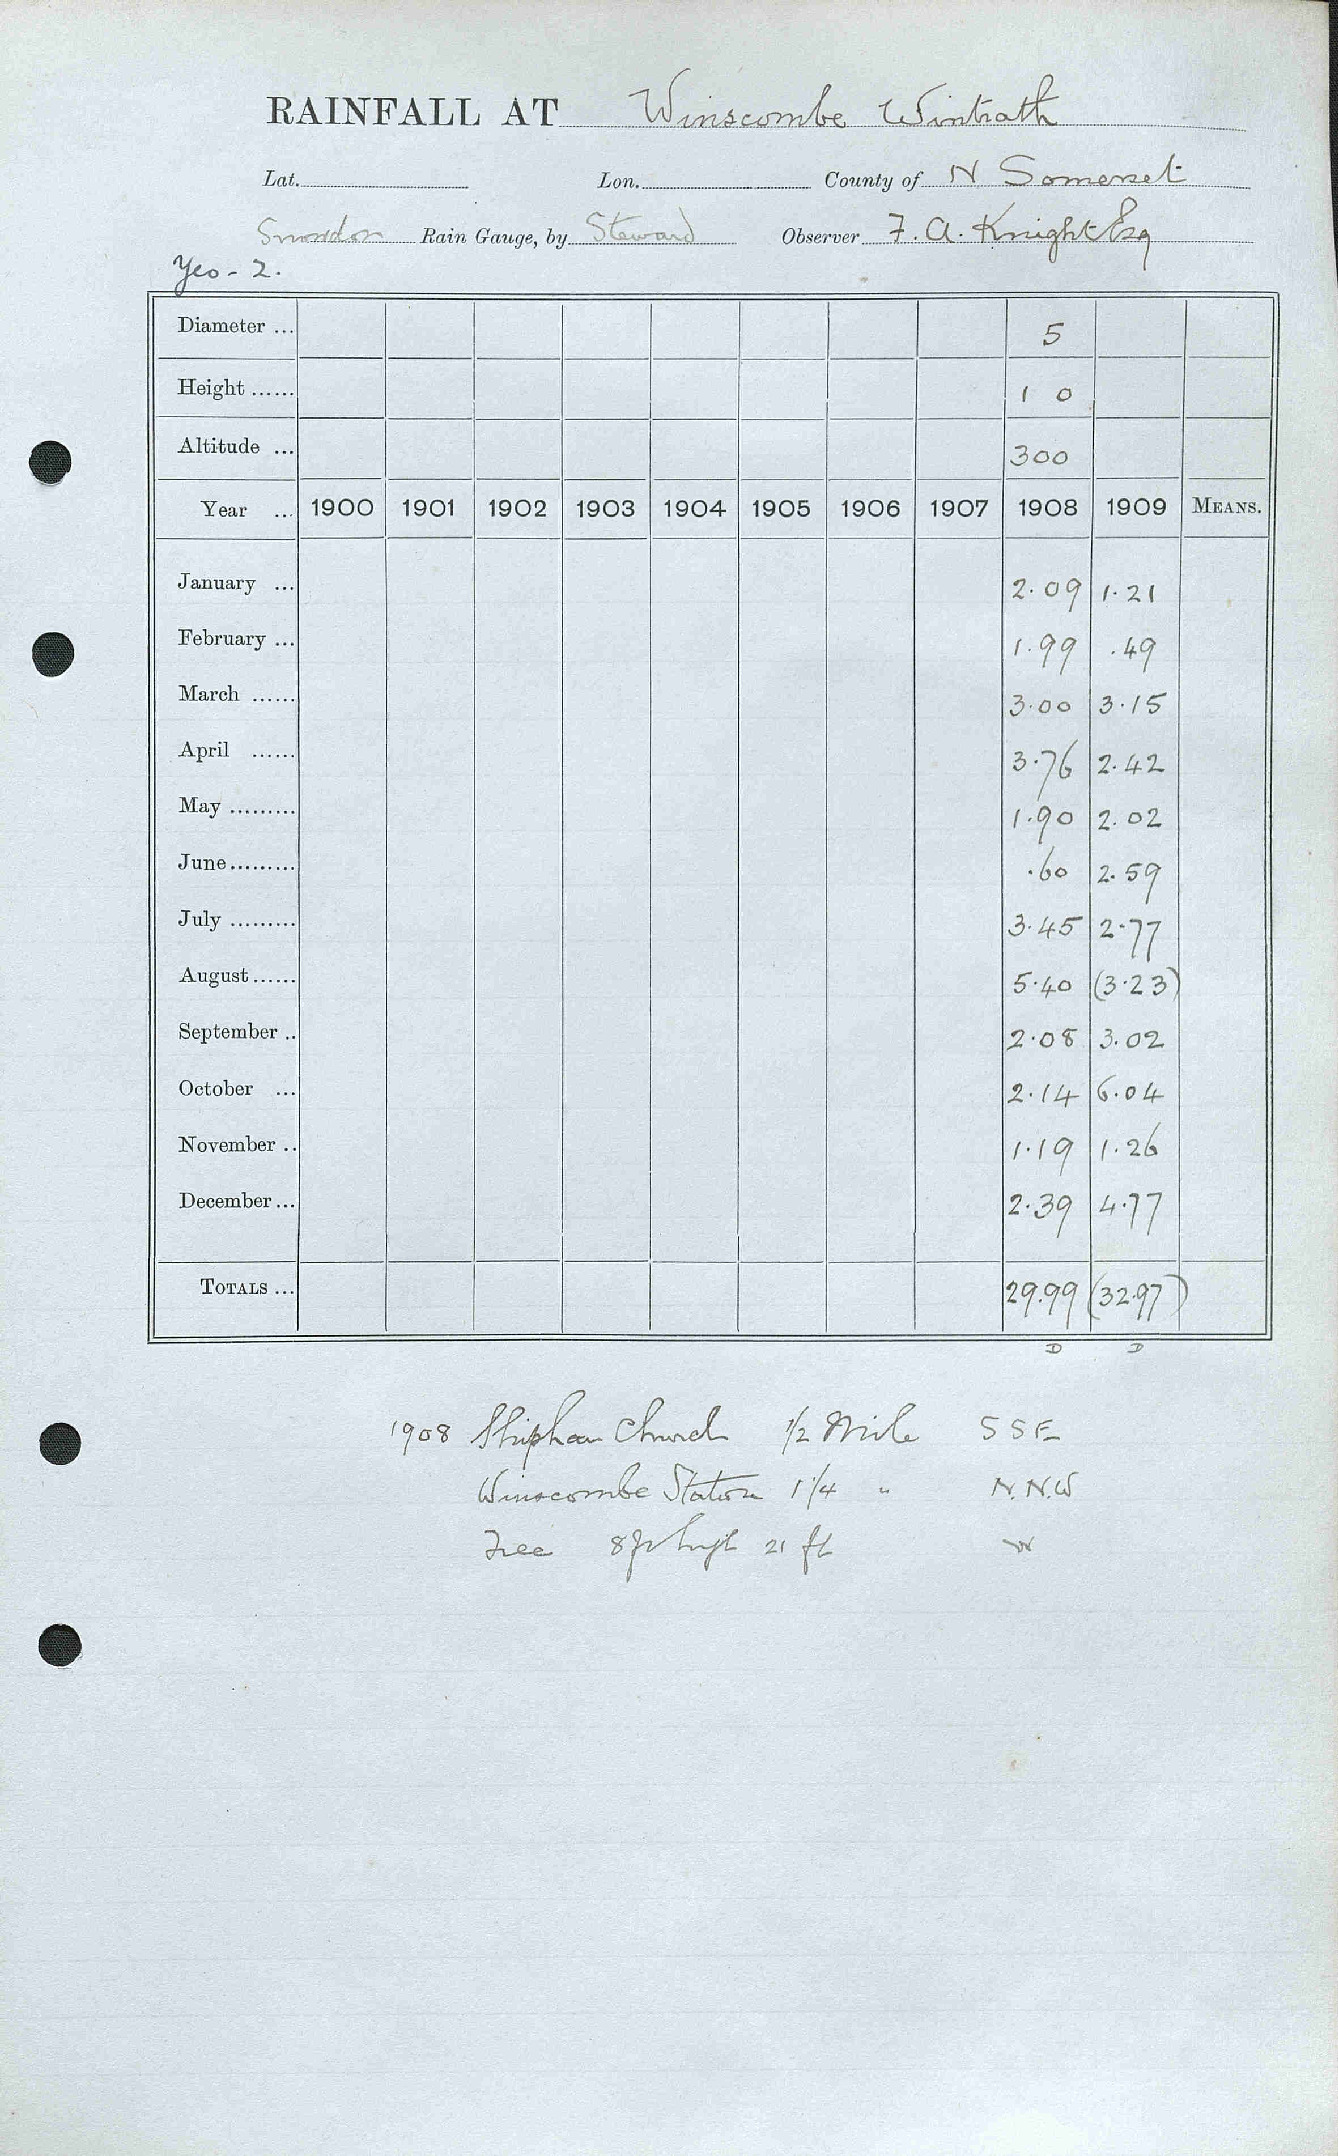 RAINFALL AT Winscombe Wintrath
Lat. Lon. County of N Somerset
Snowdon Rain Gauge, by Steward Observer F. A. Knight Esq
Yeo - 2.
Diameter ... 5
Height ...... 1 0
Altitude ... 300
Year ... 1900 1901 1902 1903 1904 1905 1906 1907 1908 1909 MEANS.
January ... 2.09 1.21
February ... 1.99 .49
March ...... 3.00 3.15
April ...... 3.76 2.42
May ......... 1.90 2.02
June ......... .60 2.59
July ......... 3.45 2.77
August ...... 5.40 (3.23)
September .. 2.08 3.02
October ... 2.14 6.04
November .. 1.19 1.26
December ... 2.39 4.77
TOTALS ... 29.99 (32.97)
D D
1908 Shipham Church 1/2 Mile S S E
Winscombe Station 1 1/4 " N.N.W
Tree 8 ft high 21 ft W